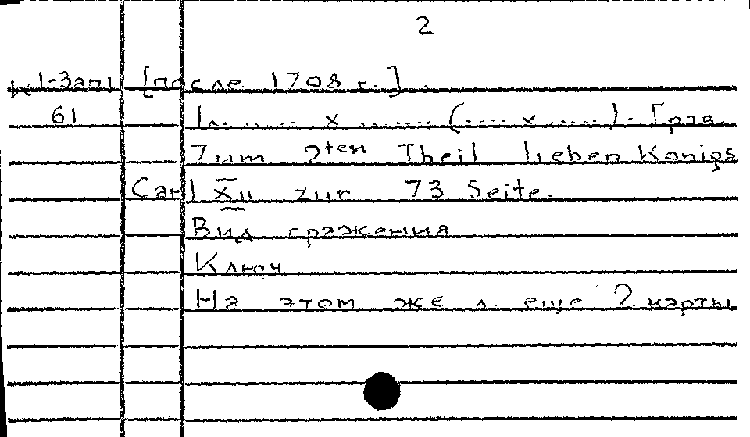 2
К1-Зап1 [после 1708 г.]
61 1........ x ........ (..... x .....). Грав.
Zum 2ten Theil lieben Konigs
Carl XII zur 73 Seite.
Вид сражения
Ключ
На этом же л. еще 2 карты